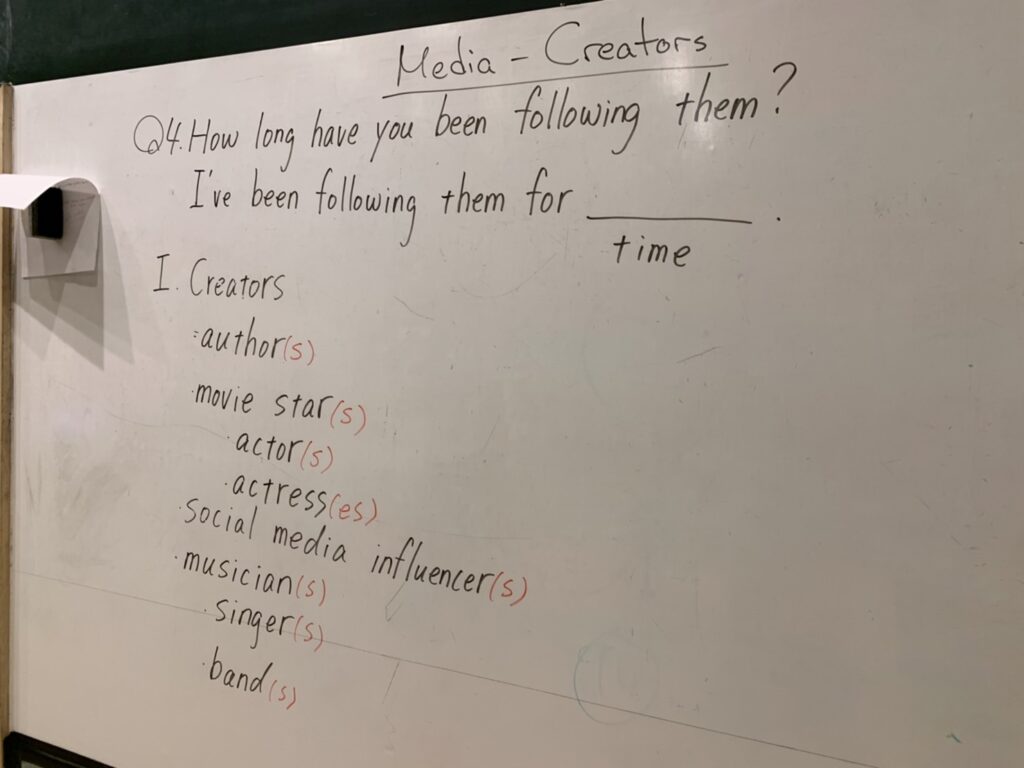 Media - Creators
Q4. How long have you been following them?
I've been following them for ________.
time
I. Creators
·author(s)
·movie star(s)
·actor(s)
·actress(es)
·social media influencer(s)
·musician(s)
·singer(s)
·band(s)